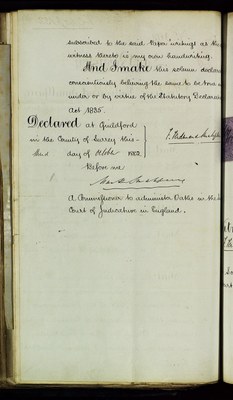 subscribed to the said Before writing as the
witness thereto is my own handwriting.
And I make this solemn declara
conscientiously believing the same to be true a
under or by virtue of the Statutory Declaratio
Act 1835.
Declared at Guildford
in the County of Surrey this
third day of October 1882
Before me
A Commissioner to administer Oaths in the S
Court of Judicature in England.